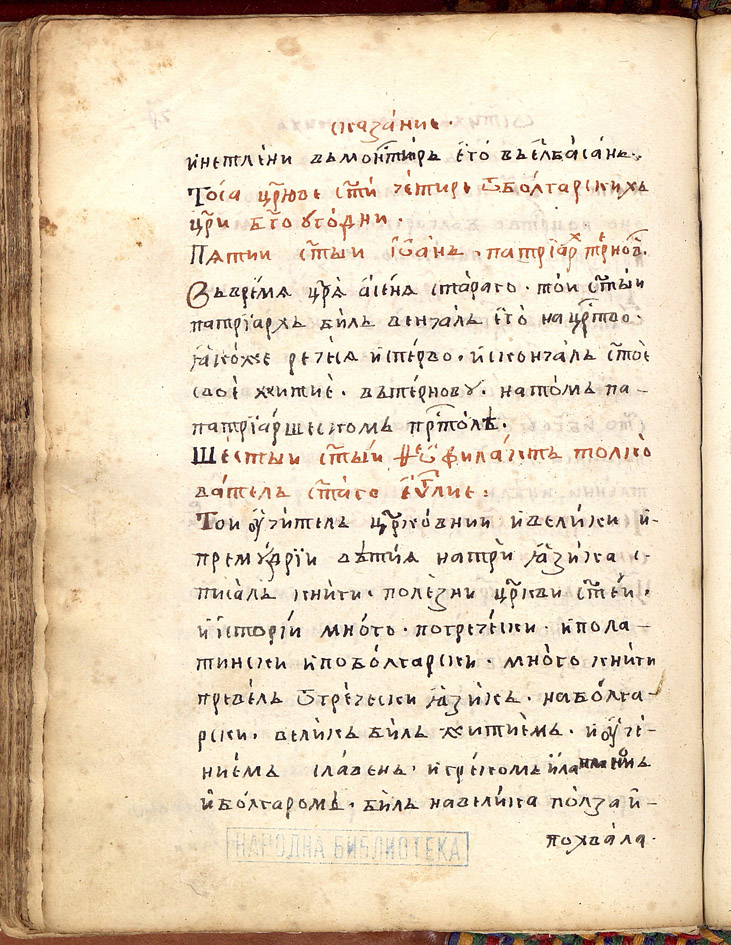 сказание ·
и нетлени въ монтирь его въ елбасань ·
Тоіа црїове стїи четире ѿ болгарскихъ
црїи бг҃о угодни ·
Пятии ст҃ыи іѡань · патрїархъ терновс
Въ время црꙗ асеня стараго · тои ст҃ыи
патрїархъ биль венчаль его на црс҃тво ·
ꙗкоже речесѧ и сперво · и скончаль ст҃ое
свое житие · въ тернову · на томъ па-
патрїаршескомъ прс҃толѣ ·
Шестыи ст҃ыи ѳеѡфилактъ толко
ватель ст҃аго еѵⷢ҇лие :
Тои ѹчитель црк҃овнии и велики и
премꙋдрїи вѣтия на три ꙗзика с
писаль книги · полезни црк҃ви ст҃еи ·
и истории много · погречески · и пола-
тински и по болгарски · много книги
превель ѿ гречески ꙗзикъ · на болга-
рски · великъ биль житиемъ · и ѹче-
ниемъ славень · и грекомъ и латиномъ
и болгаромъ · биль на велика ползаи-
похвала ·
НАРОДНА БИБЛИОТЕКА